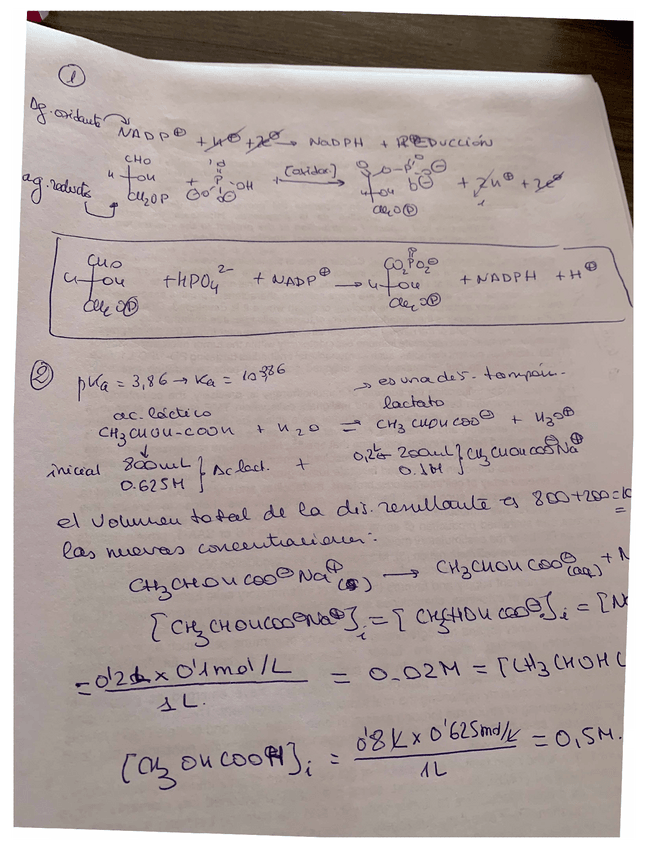 1
Ag. oxidante NADP⊕ + H⊕ + 2e⊖ → NADPH + REDUCCIÓN
CHO
ag. reductor H OH + ⊖O P OH + [oxidac.] → O O-P ⊖ + 2H⊕ + 2e⊖
CH₂OP H OH
CH₂OⓅ
CHO CO₂PO₂⊖
H OH + HPO₄²⁻ + NADP⊕ → H OH + NADPH + H⊕
CH₂OⓅ CH₂OⓅ
2 pKa = 3,86 → Ka = 10^-3,86 → es una dis. tampón.
ac. láctico lactato
CH₃CHOH-COOH + H₂O ⇌ CH₃CHOHCOO⊖ + H₃O⊕
inicial 800mL } Ac lact. + 0,2L 200mL } CH₃CHOHCOO⊖Na⊕
0.625M 0.1M
el volumen total de la dis. resultante es 800+200=10
las nuevas concentraciones:
CH₃CHOHCOO⊖Na⊕(s) → CH₃CHOHCOO⊖(aq) + N
[CH₃CHOHCOO⊖Na⊕]i = [CH₃CHOHCOO⊖]i = [Na
= 0'2L x 0'1mol/L / 1L. = 0.02M = [CH₃CHOHC
[CH₃OHCOOH]i = 0'8L x 0'625mol/L / 1L = 0,5M.